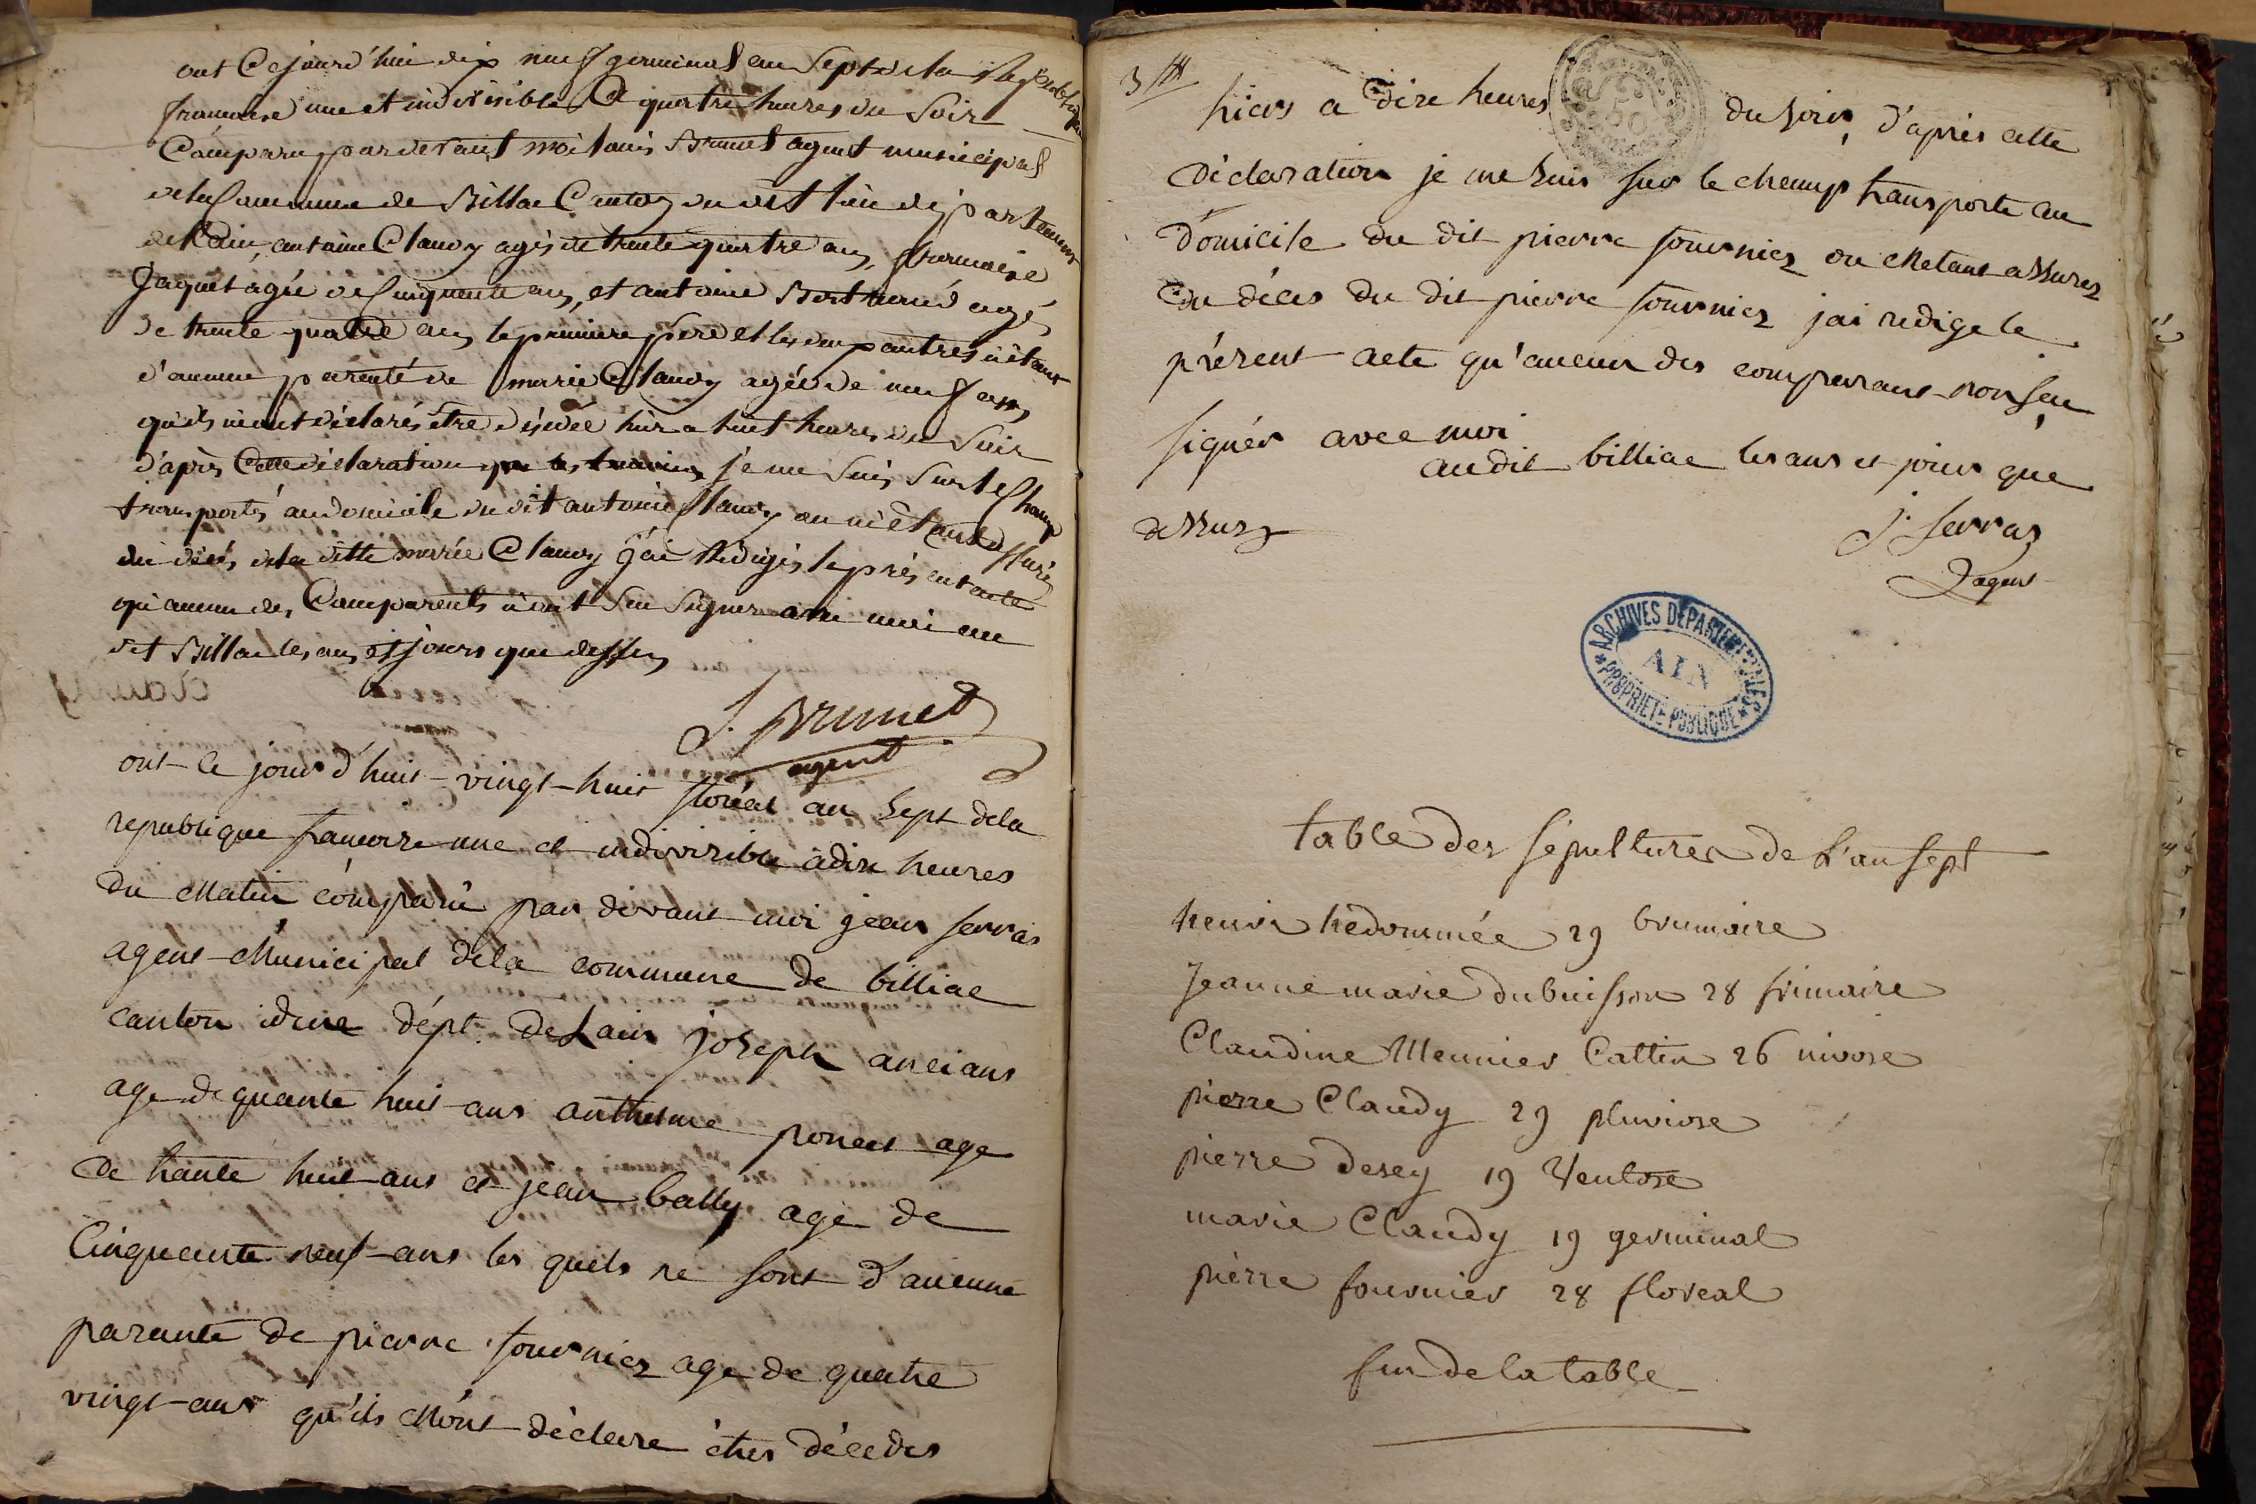 ont Cejourd'hui dix neuf germinal an Sept dela Republique
francoise une et indivisible a quatre heures du Soir
Comparu pardevant moi louis Brunet agent municipal
dela Commune de Billiac Canton du dit lieu departement
de l'ain, antoine Claudy agés de trente quatre ans,
Jaquet agée de Cinquante ans, et antoine agé
de trente quatre ans le premiere pere et les deux autres n'étant
d'aucune parenté de marie Claudy agée de neuf ans
qu'ils m'ont déclarés etre décédée hier a huit heures du Soir
d'après Cette déclaration je me Suis Sur le Champ
transportés au domicile du dit antoine Claudy ou m'étant assuré
du décés dela ditte marie Claudy j'ai Rédigés le présent acte
qu'aucun des Comparents n'ont Seu Signer avec moi au
dit Billiac les ans et jours que dessus
J. Brunet
agent
ont ce jours d'huit vingt-huit floréal an Sept dela
republique francoise une et indivisible à dix heures
du Matin comparu par devant moi jean serras
agent Municipal dela commune de billiac
canton idem dépt. de Lain joseph ancians
age de quarante huit ans anthelme ponect age
de trante huit ans et jean bally age de
Cinquante neuf ans les quels ne sont d'aucune
parante de pierre fournier age de quatre
vingt-ans qu'ils M'ont déclare étres décedes
3
hiers a dixe heures du soir, d'après cette
déclaration je me suis sur le champ transporte au
domicile du dit pierre fournier ou Metant assurez
du déces du dit pierre fournier jai redige le
présent acte qu'aucun des comparans non seu
signér avec moi
au dit billiac les ans et jour que
dessus
J. serras
agent
50
ARCHIVES DÉPARTEMENTALES
AIN
PROPRIÉTÉ PUBLIQUE
table des sépultures de L'an sept
henri hédoumée 29 brumaire
Jeanne marie dubuisson 28 frimaire
Claudine Meunier Cattin 26 nivose
pierre Claudy 29 pluviose
pierre desey 19 Ventose
marie Claudy 19 germinal
pierre fournier 28 floreal
fin de la table